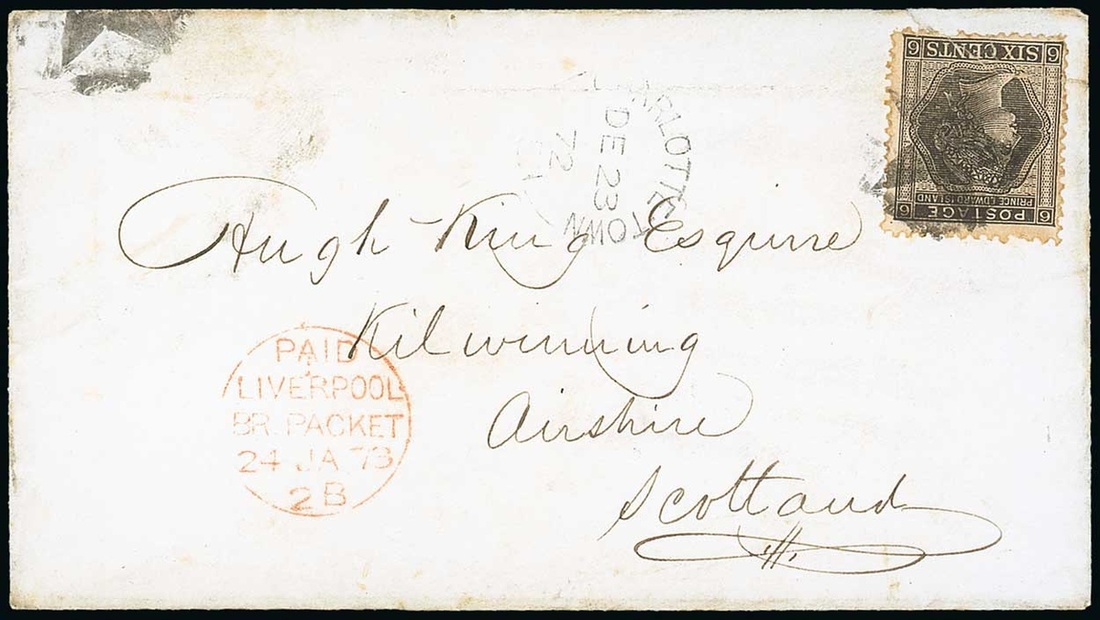 6 SIX CENTS 6
PRINCE EDWARD ISLAND
6 POSTAGE 6
CHARLOTTETOWN
DE 23
72
Hugh King Esquire
Kilwinning
Airshire
Scotland
PAID
LIVERPOOL
BR. PACKET
24 JA 73
2B